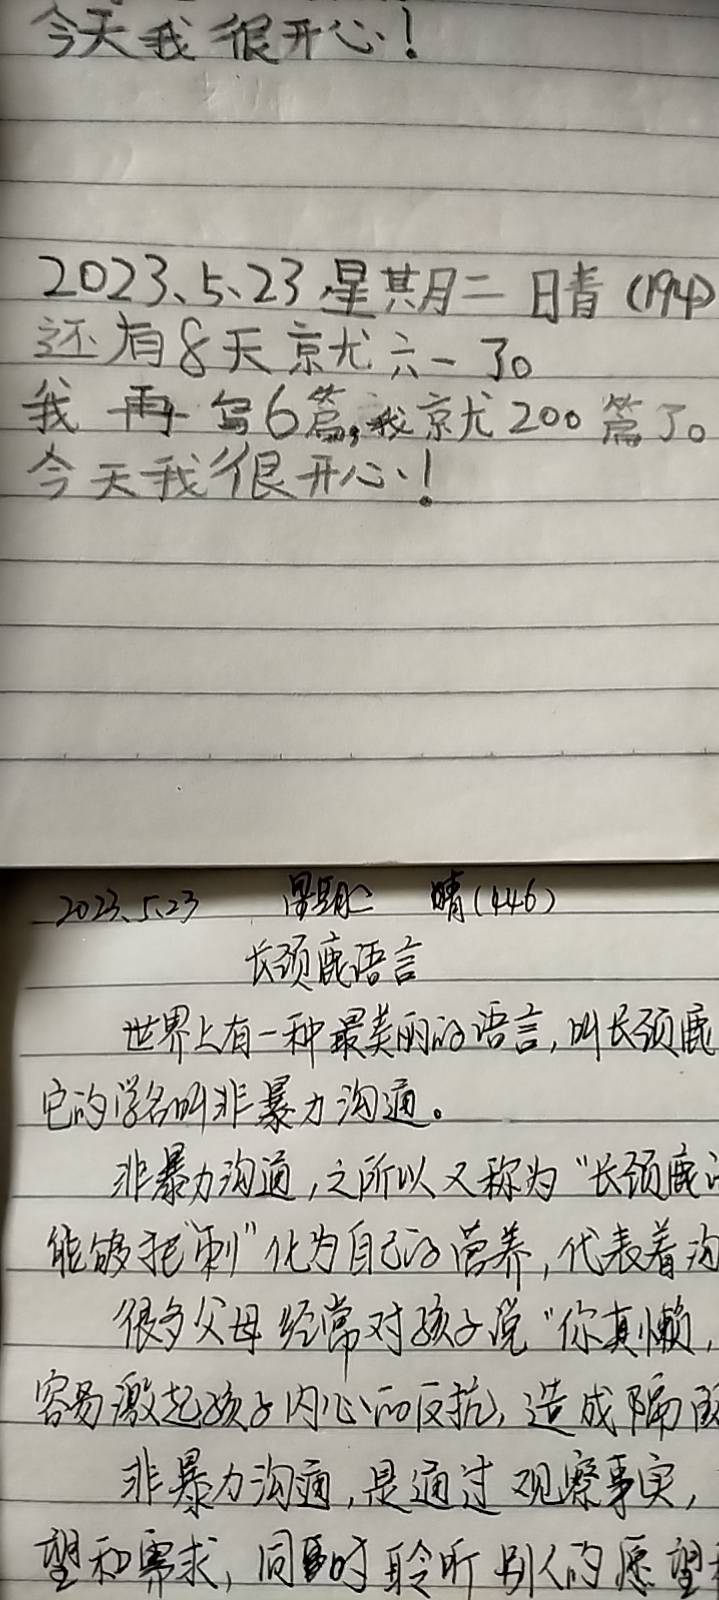 今天我很开心!
2023、5、23 星期二 晴 (194)
还有8天就六一了。
我再写6篇,我就200篇了。
今天我很开心!
2023、5、23 星期二 晴(446)
长颈鹿语言
世界上有一种最美丽的语言,叫长颈鹿
它的学名叫非暴力沟通。
非暴力沟通,之所以又称为“长颈鹿
能够把“刺”化为自己的营养,代表着沟
很多父母经常对孩子说“你真懒,
容易激起孩子内心的反抗,造成隔阂
非暴力沟通,是通过观察事实,
望和需求,同时聆听别人的愿望